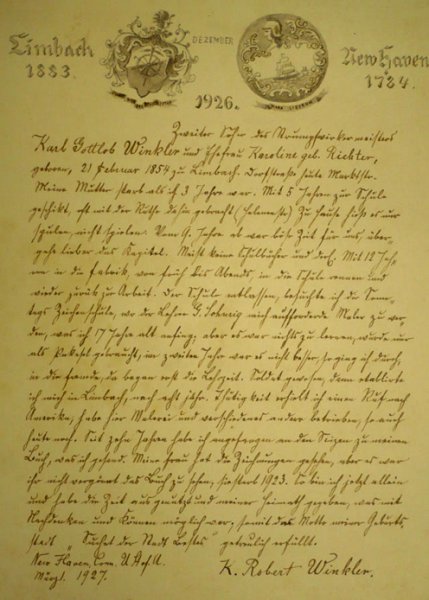 Limbach
1883.
DEZEMBER
New Haven
1784.
1926.
Zweiter Sohn des Strumpfwirkermeisters
Karl Gottlob Winkler und Ehefrau Karoline geb. Richter,
geboren, 21 Februar 1854 zu Limbach. Dorfstraße heute Marktstr.
Meine Mutter starb als ich 3 Jahre war. Mit 5 Jahren zur Schule
geschikt, oft mit der Ruthe dahin gebracht (Helenestr.) Zu Hause hieß es nur
spulen, nicht spielen. Vom 9. Jahre ab war böse Zeit für uns, über-
gehe lieber das Kapitel. Meist keine Schulbücher und der. Mit 12 Jah-
ren in die Fabrik, von früh bis Abends, in die Schule rennen und
wieder zurük zur Arbeit. Der Schule entlassen, besuchte ich die Sonn-
tags Zeichenschule, wo der Lehrer G. mich aufforderde Maler zu wer-
den, was ich 17 Jahre alt anfing; aber es war nichts zu lernen, wurde nur
als Pinksel gebraucht, im zweiten Jahr war es nicht besser, so ging ich durch,
in die Fremde, da began erst die Lehrzeit. Soldat gewesen, dann etablirte
ich mich in Limbach, nach acht jähr. Thätigkeit erhielt ich einen Ruf nach
Amerika, habe hier Malerei und verschiedenes andere betrieben, so auch
heute noch. Seit zehn Jahren habe ich angefangen an den Skizen zu meinen
Buch, was ich gesand. Meine Frau hat die Zeichnungen gesehen, aber es war
ihr nicht vergönnt das Buch zu sehen, sie starb 1923. So bin ich jetzt allein
und habe die Zeit ausgenützt und meiner Heimath gegeben, was mit
Nachdenken und Können möglich war, somit das Motto meiner Geburts
stadt „Suchet der Stadt Bestes“ getreulich erfüllt.
New Haven, Conn. U.St.v.A.
März 1927.
K. Robert Winkler.